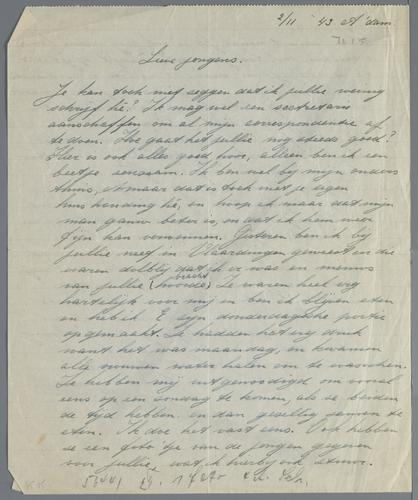 2/11 '43 A'dam
Lieve jongens.
Je kan toch niet zeggen dat ik jullie weinig
schrijf hè? Ik mag wel een secretaris
aanschaffen om al mijn correspondentie af
te doen. Hoe gaat het jullie nog steeds goed?
Hier is ook alles goed, hoor, alleen ben ik een
beetje eenzaam. Ik ben wel bij mijn ouders
thuis, maar dat is toch niet je eigen
huishouding hè, en hoop ik maar dat mijn
man gauw beter is, en dat ik hem weer
fijn kan verwennen. Gisteren ben ik bij
jullie neef in Vlaardingen geweest en die
waren dolblij dat ik er was en nieuws
van jullie bracht. Ze waren heel erg
hartelijk voor mij en ben ik blijven eten
en heb ik een donderdagsche portie
opgemaakt. Ze hadden het erg druk
want het was maandag, en kwamen
alle vrouwen water halen om te wasschen.
Ze hebben mij uitgenoodigd om vooral
eens op een zondag te komen, als ze beiden
de tijd hebben en dan gezellig samen te
eten. Ik doe het vast eens. Ook hebben
ze een foto'tje van de jongen gegeven
voor jullie, wat ik hierbij ook stuur.